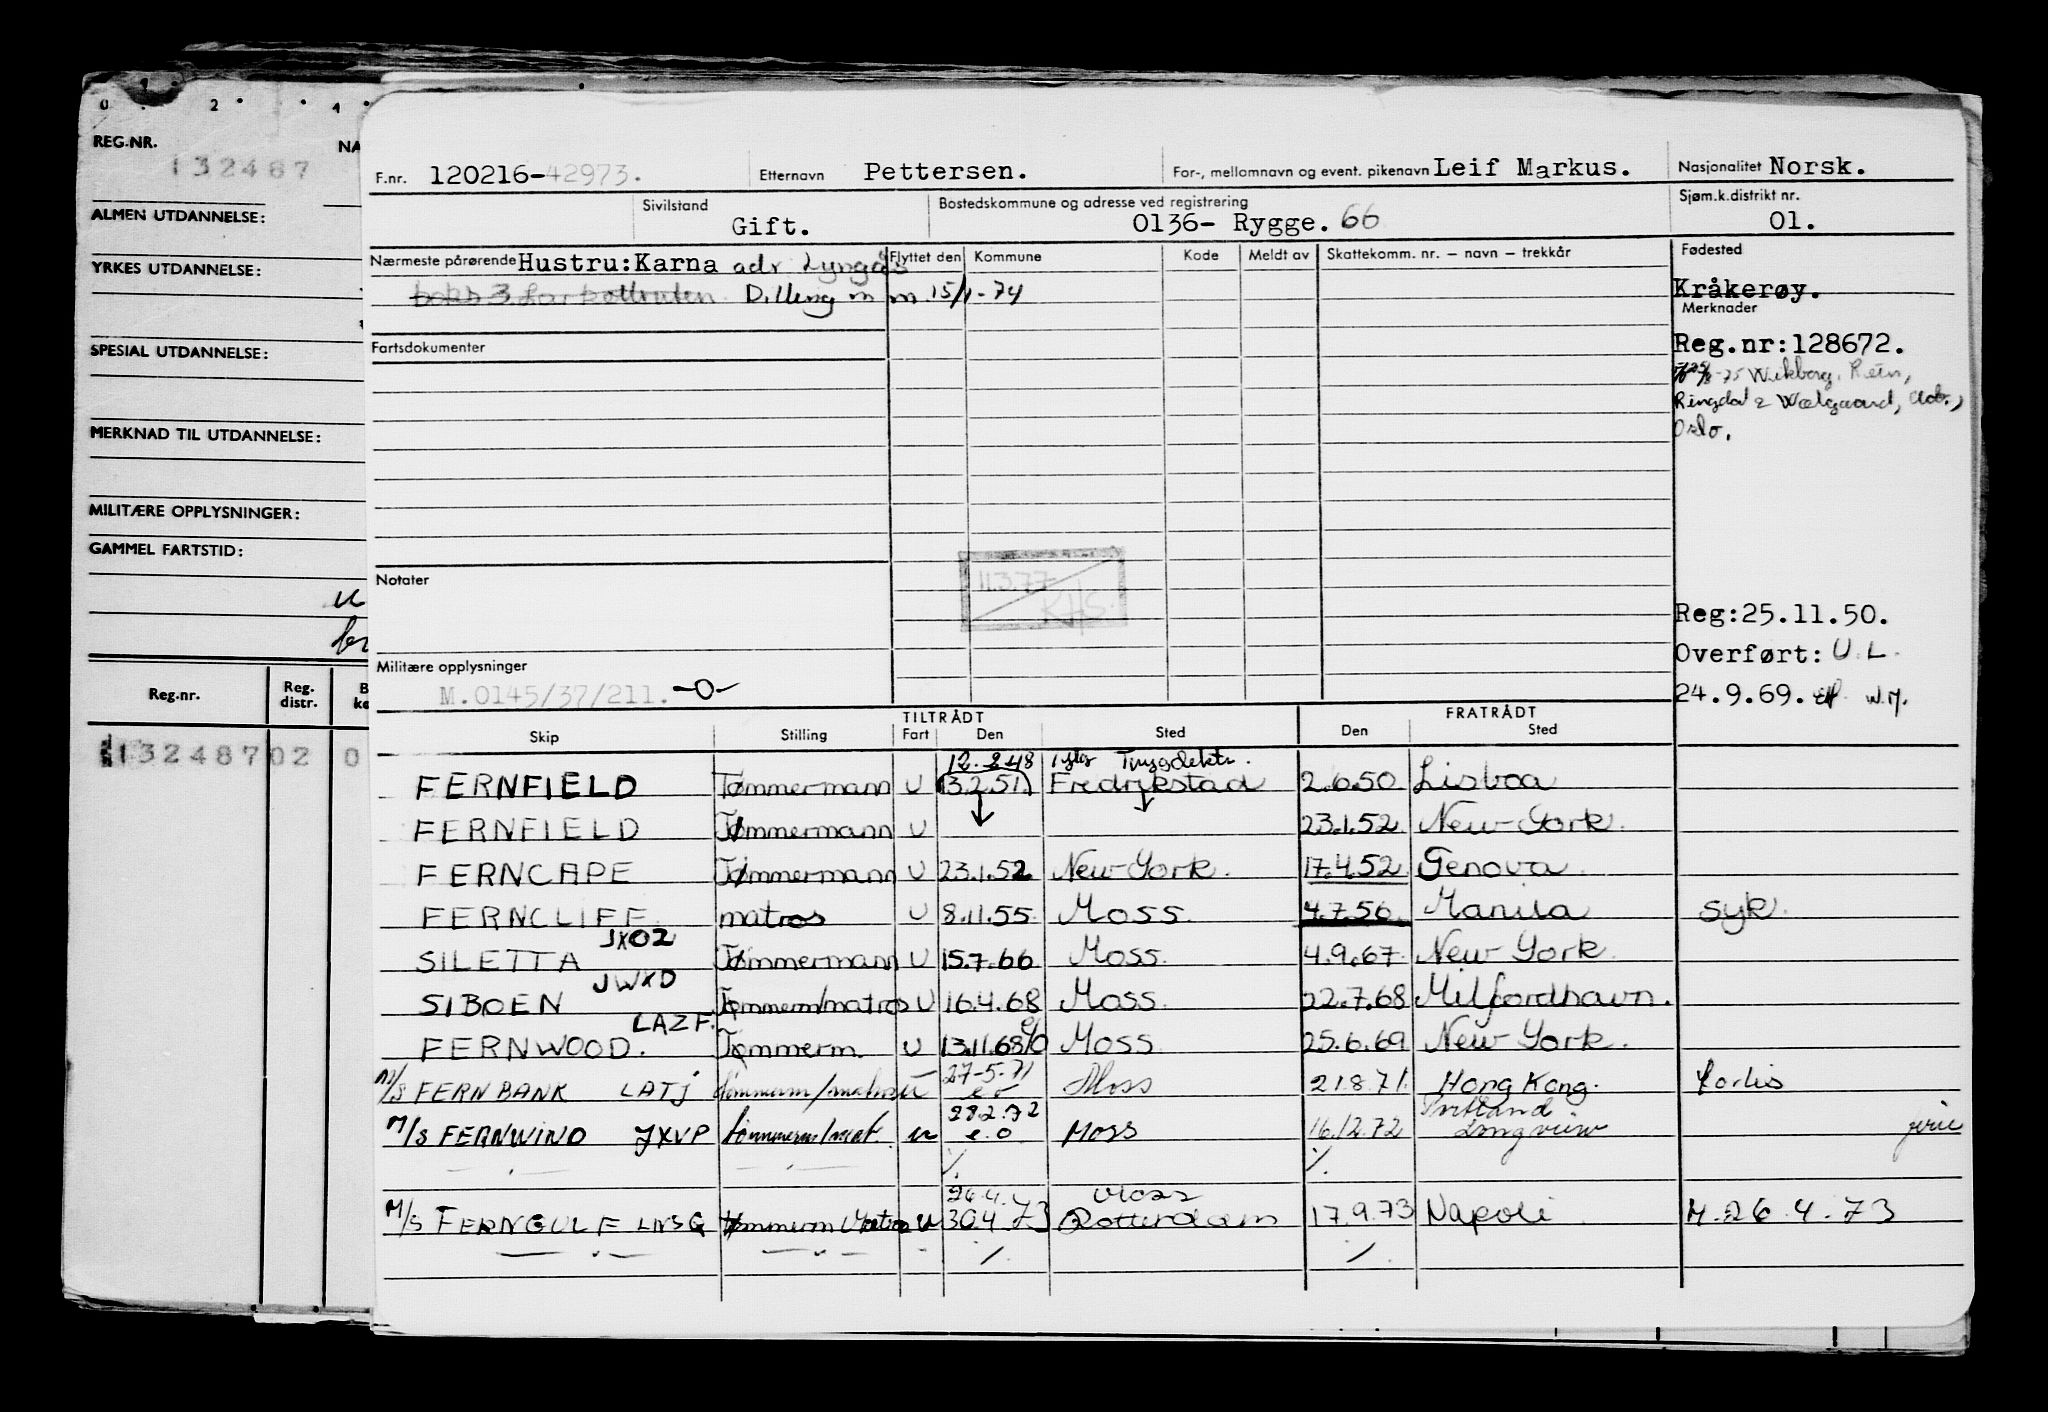 0 . 2 . . 4 .
REG.NR.
NA
132487
F.nr. 120216-42973. Etternavn Pettersen. For-, mellomnavn og event. pikenavn Leif Markus. Nasjonalitet Norsk.
ALMEN UTDANNELSE:
Sivilstand Gift. Bostedskommune og adresse ved registrering 0136- Rygge. 66 Sjøm.k.distrikt nr. 01.
Nærmeste pårørende Hustru:Karna adr Lyngås Flyttet den Kommune Kode Meldt av Skattekomm. nr. – navn – trekkår Fødested
YRKES UTDANNELSE:
boks 3 Dilling m m 15/1-74
Kråkerøy.
Merknader
Fartsdokumenter
Reg.nr:128672.
SPESIAL UTDANNELSE:
-75 Wikborg, Rein,
Ringdal & Wælgaard, adv.,
Oslo.
MERKNAD TIL UTDANNELSE:
MILITÆRE OPPLYSNINGER:
GAMMEL FARTSTID:
Notater
11.3.77
KHS.
Reg:25.11.50.
Overført: U.L.
24.9.69. W.M.
Militære opplysninger
M.0145/37/211. -0-
Reg.nr. Reg. distr. B ke
TILTRÅDT FRATRÅDT
Skip Stilling Fart Den Sted Den Sted
13248702 0
12.2.48 Trygdektr.
FERNFIELD Tømmermann U 13.2.51. Fredrikstad 2.6.50 Lisboa
FERNFIELD Tømmermann U 23.1.52 New York.
FERNCAPE Tømmermann U 23.1.52 New York. 17.4.52 Genova.
FERNCLIFF matros U 8.11.55. Moss. 4.7.56. Manila syk.
JXOZ
SILETTA Tømmermann U 15.7.66 Moss. 4.9.67. New York.
JWXD
SIBOEN Tømmerm/matros U 16.4.68 Moss. 22.7.68 Milfordhavn.
LAZF.
FERNWOOD. Tømmerm. U 13.11.68 e/o Moss. 25.6.69 New York.
27-5.71
M/S FERNBANK LATJ tømmerm/matros u e o Moss 21.8.71. Hong Kong.
28.2.72 Portland
M/S FERNWIND JXVP tømmerm/mat. u e.o Moss 16.12.72 Longview ferie
— . — — . — ./. ./.
26.4.73 Moss
M/S FERNGULF LNSG tømmerm/Matros u 30.4.73 Rotterdam 17.9.73 Napoli M.26.4.73
— . — — . — ./. ./.